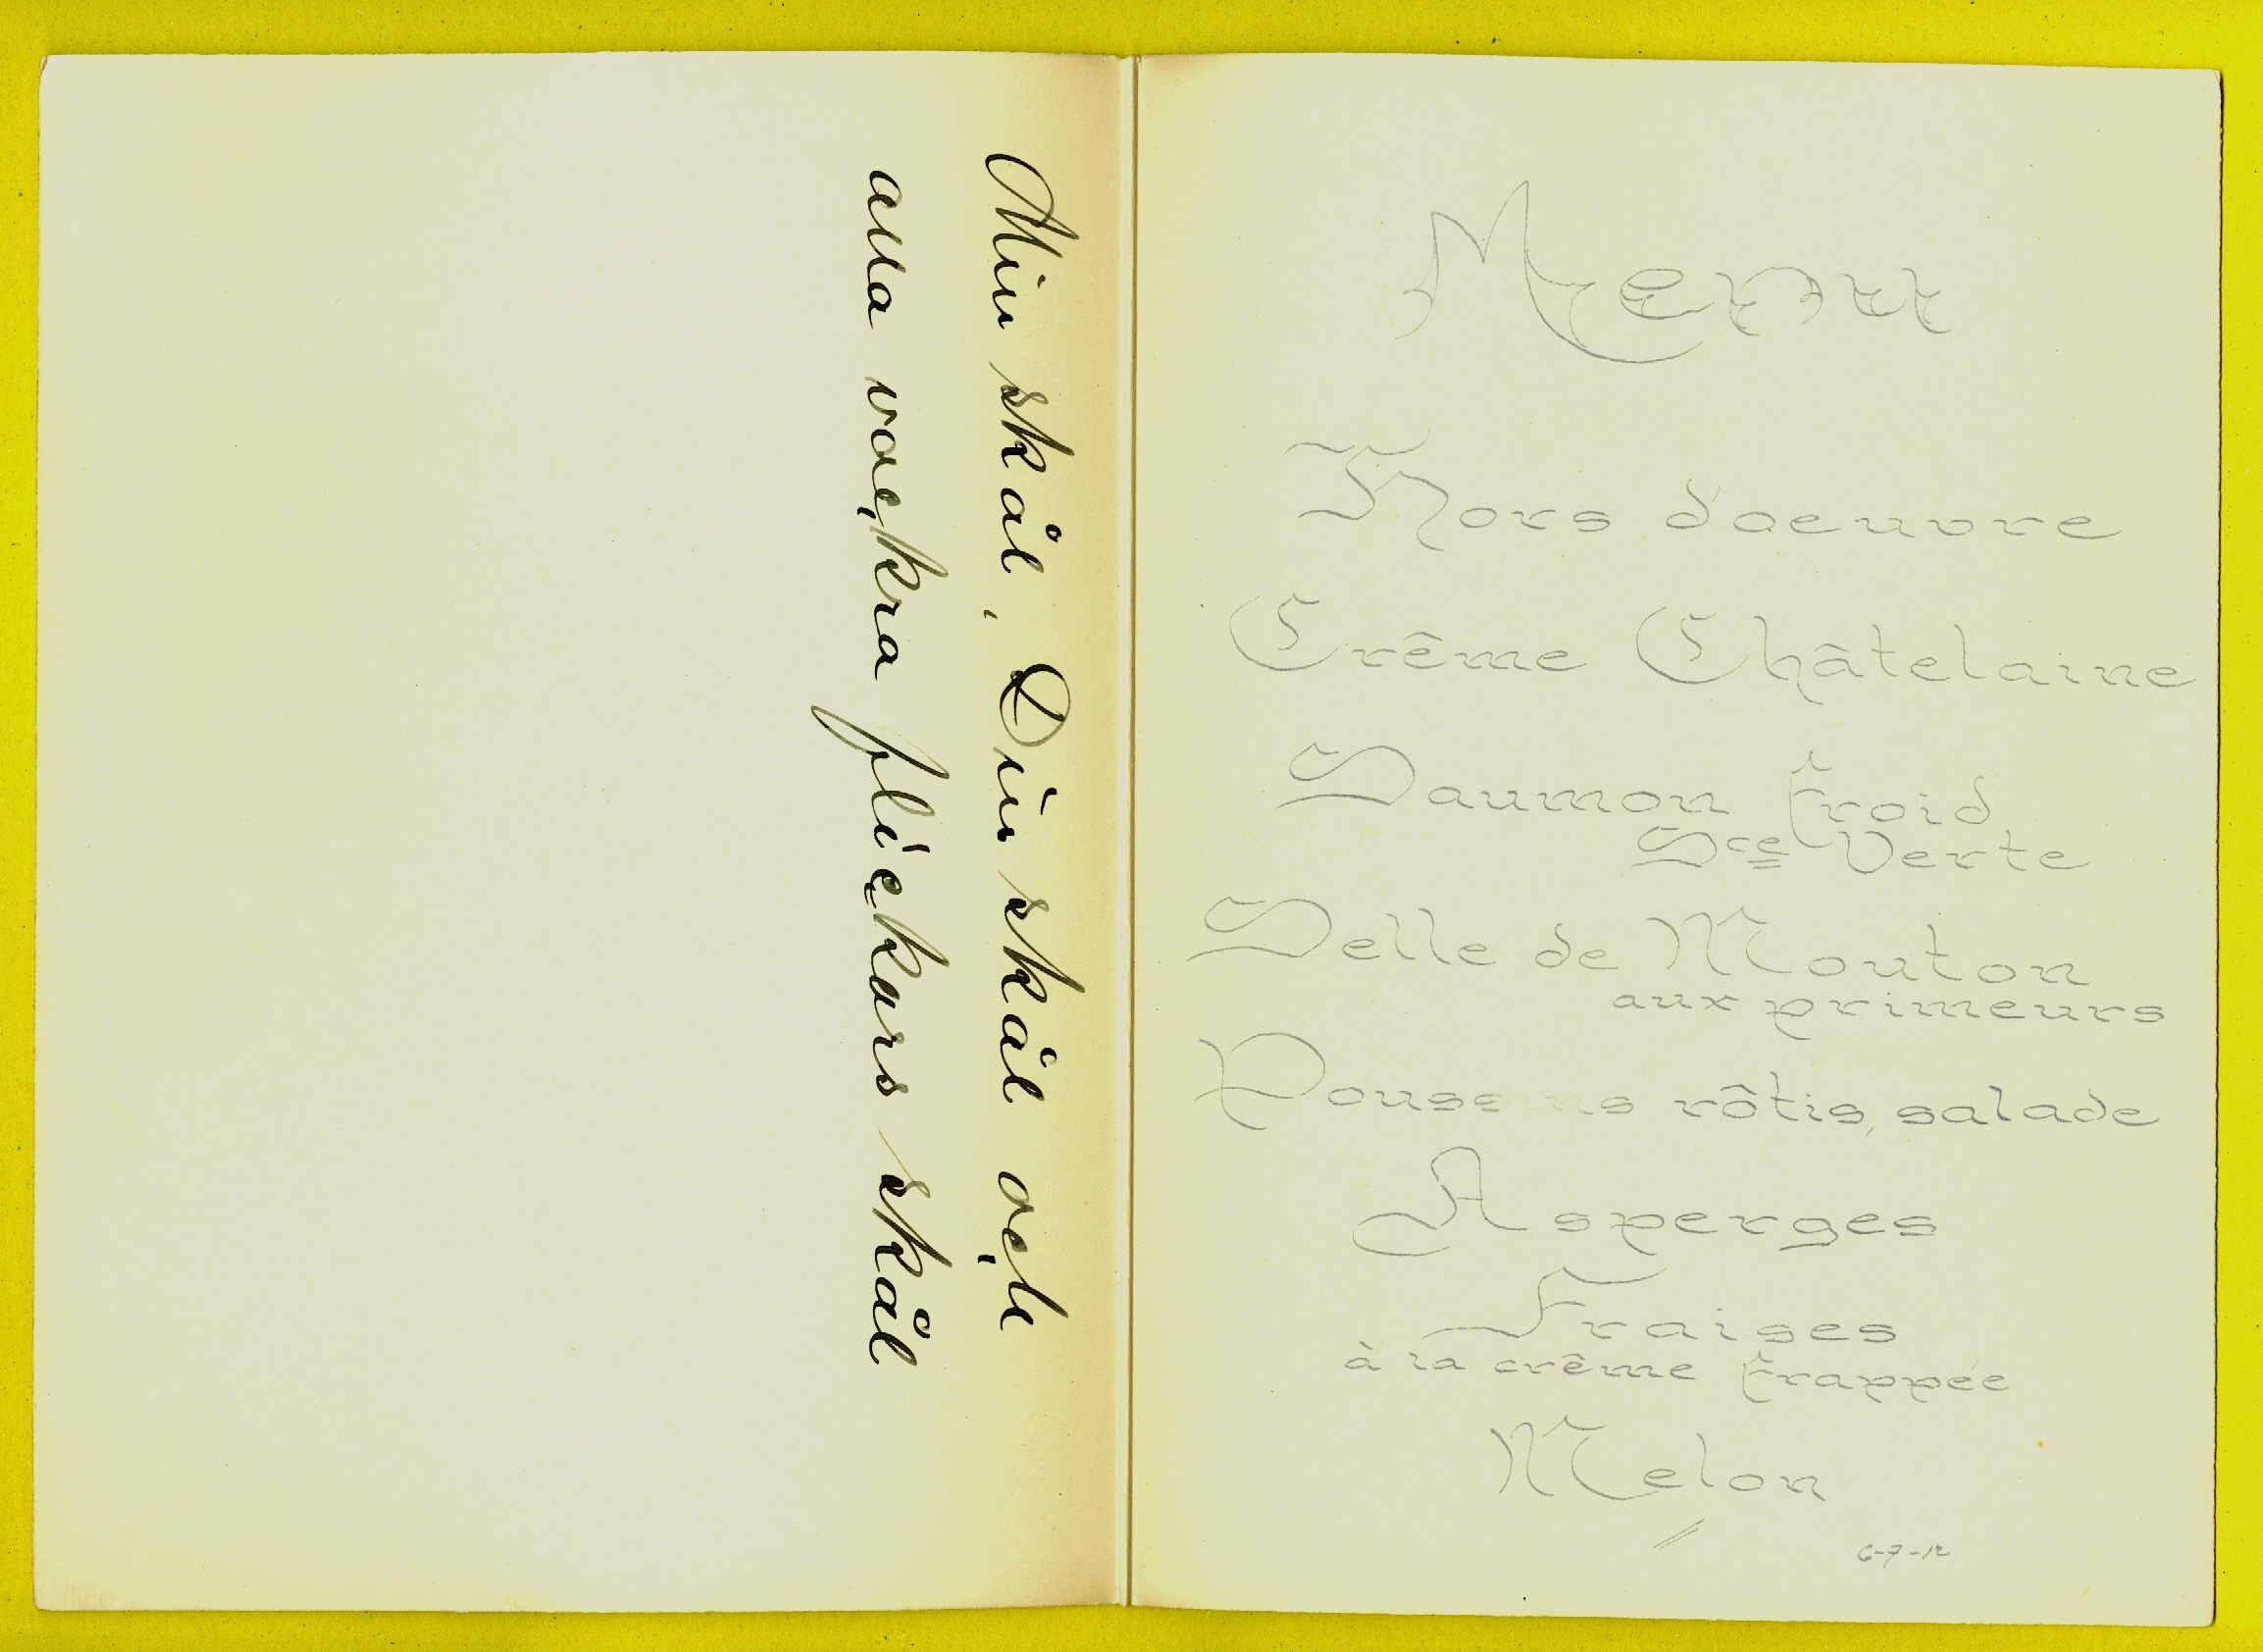 Min skål, Din skål och
alla vackra flickors skål
Menu
Hors d'oeuvre
Crême Châtelaine
Saumon froid
Sce Verte
Selle de Mouton
aux primeurs
Poussins rôtis, salade
Asperges
Fraises
à la crême frappée
Melon
6-7-12